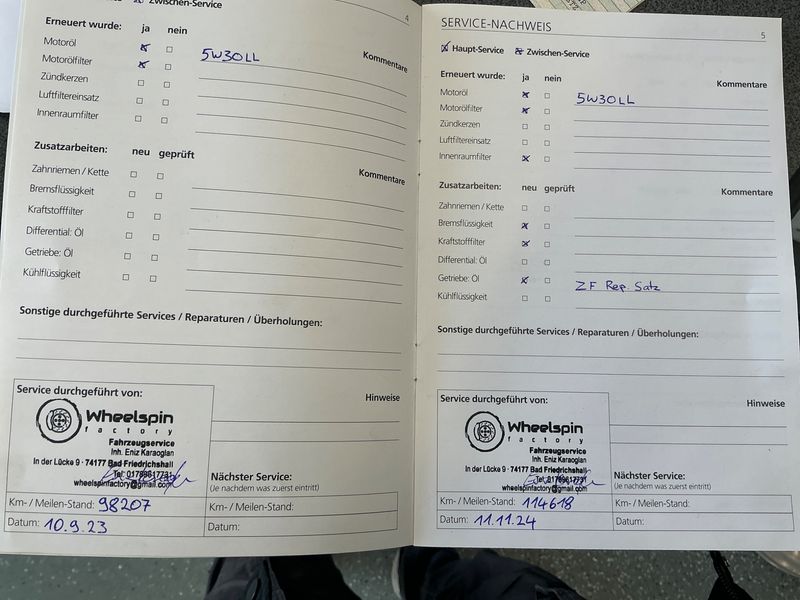 Zwischen-Service
4
Erneuert wurde: ja nein
Kommentare
Motoröl
5W30LL
Motorölfilter
Zündkerzen
Luftfiltereinsatz
Innenraumfilter
Zusatzarbeiten: neu geprüft
Kommentare
Zahnriemen / Kette
Bremsflüssigkeit
Kraftstofffilter
Differential: Öl
Getriebe: Öl
Kühlflüssigkeit
Sonstige durchgeführte Services / Reparaturen / Überholungen:
Service durchgeführt von:
Hinweise
Wheelspin
factory
Fahrzeugservice
Inh. Eniz Karaoglan
In der Lücke 9 · 74177 Bad Friedrichshall
wheelspinfactory@gmail.com
Nächster Service:
(Je nachdem was zuerst eintritt)
Km- / Meilen-Stand: 98207
Km- / Meilen-Stand:
Datum: 10.9.23
Datum:
SERVICE-NACHWEIS
5
Haupt-Service Zwischen-Service
Erneuert wurde: ja nein
Kommentare
Motoröl
5W30LL
Motorölfilter
Zündkerzen
Luftfiltereinsatz
Innenraumfilter
Zusatzarbeiten: neu geprüft
Kommentare
Zahnriemen / Kette
Bremsflüssigkeit
Kraftstofffilter
Differential: Öl
Getriebe: Öl
ZF Rep Satz
Kühlflüssigkeit
Sonstige durchgeführte Services / Reparaturen / Überholungen:
Service durchgeführt von:
Hinweise
Wheelspin
factory
Fahrzeugservice
Inh. Eniz Karaoglan
In der Lücke 9 · 74177 Bad Friedrichshall
wheelspinfactory@gmail.com
Nächster Service:
(Je nachdem was zuerst eintritt)
Km- / Meilen-Stand: 114618
Km- / Meilen-Stand:
Datum: 11.11.24
Datum: